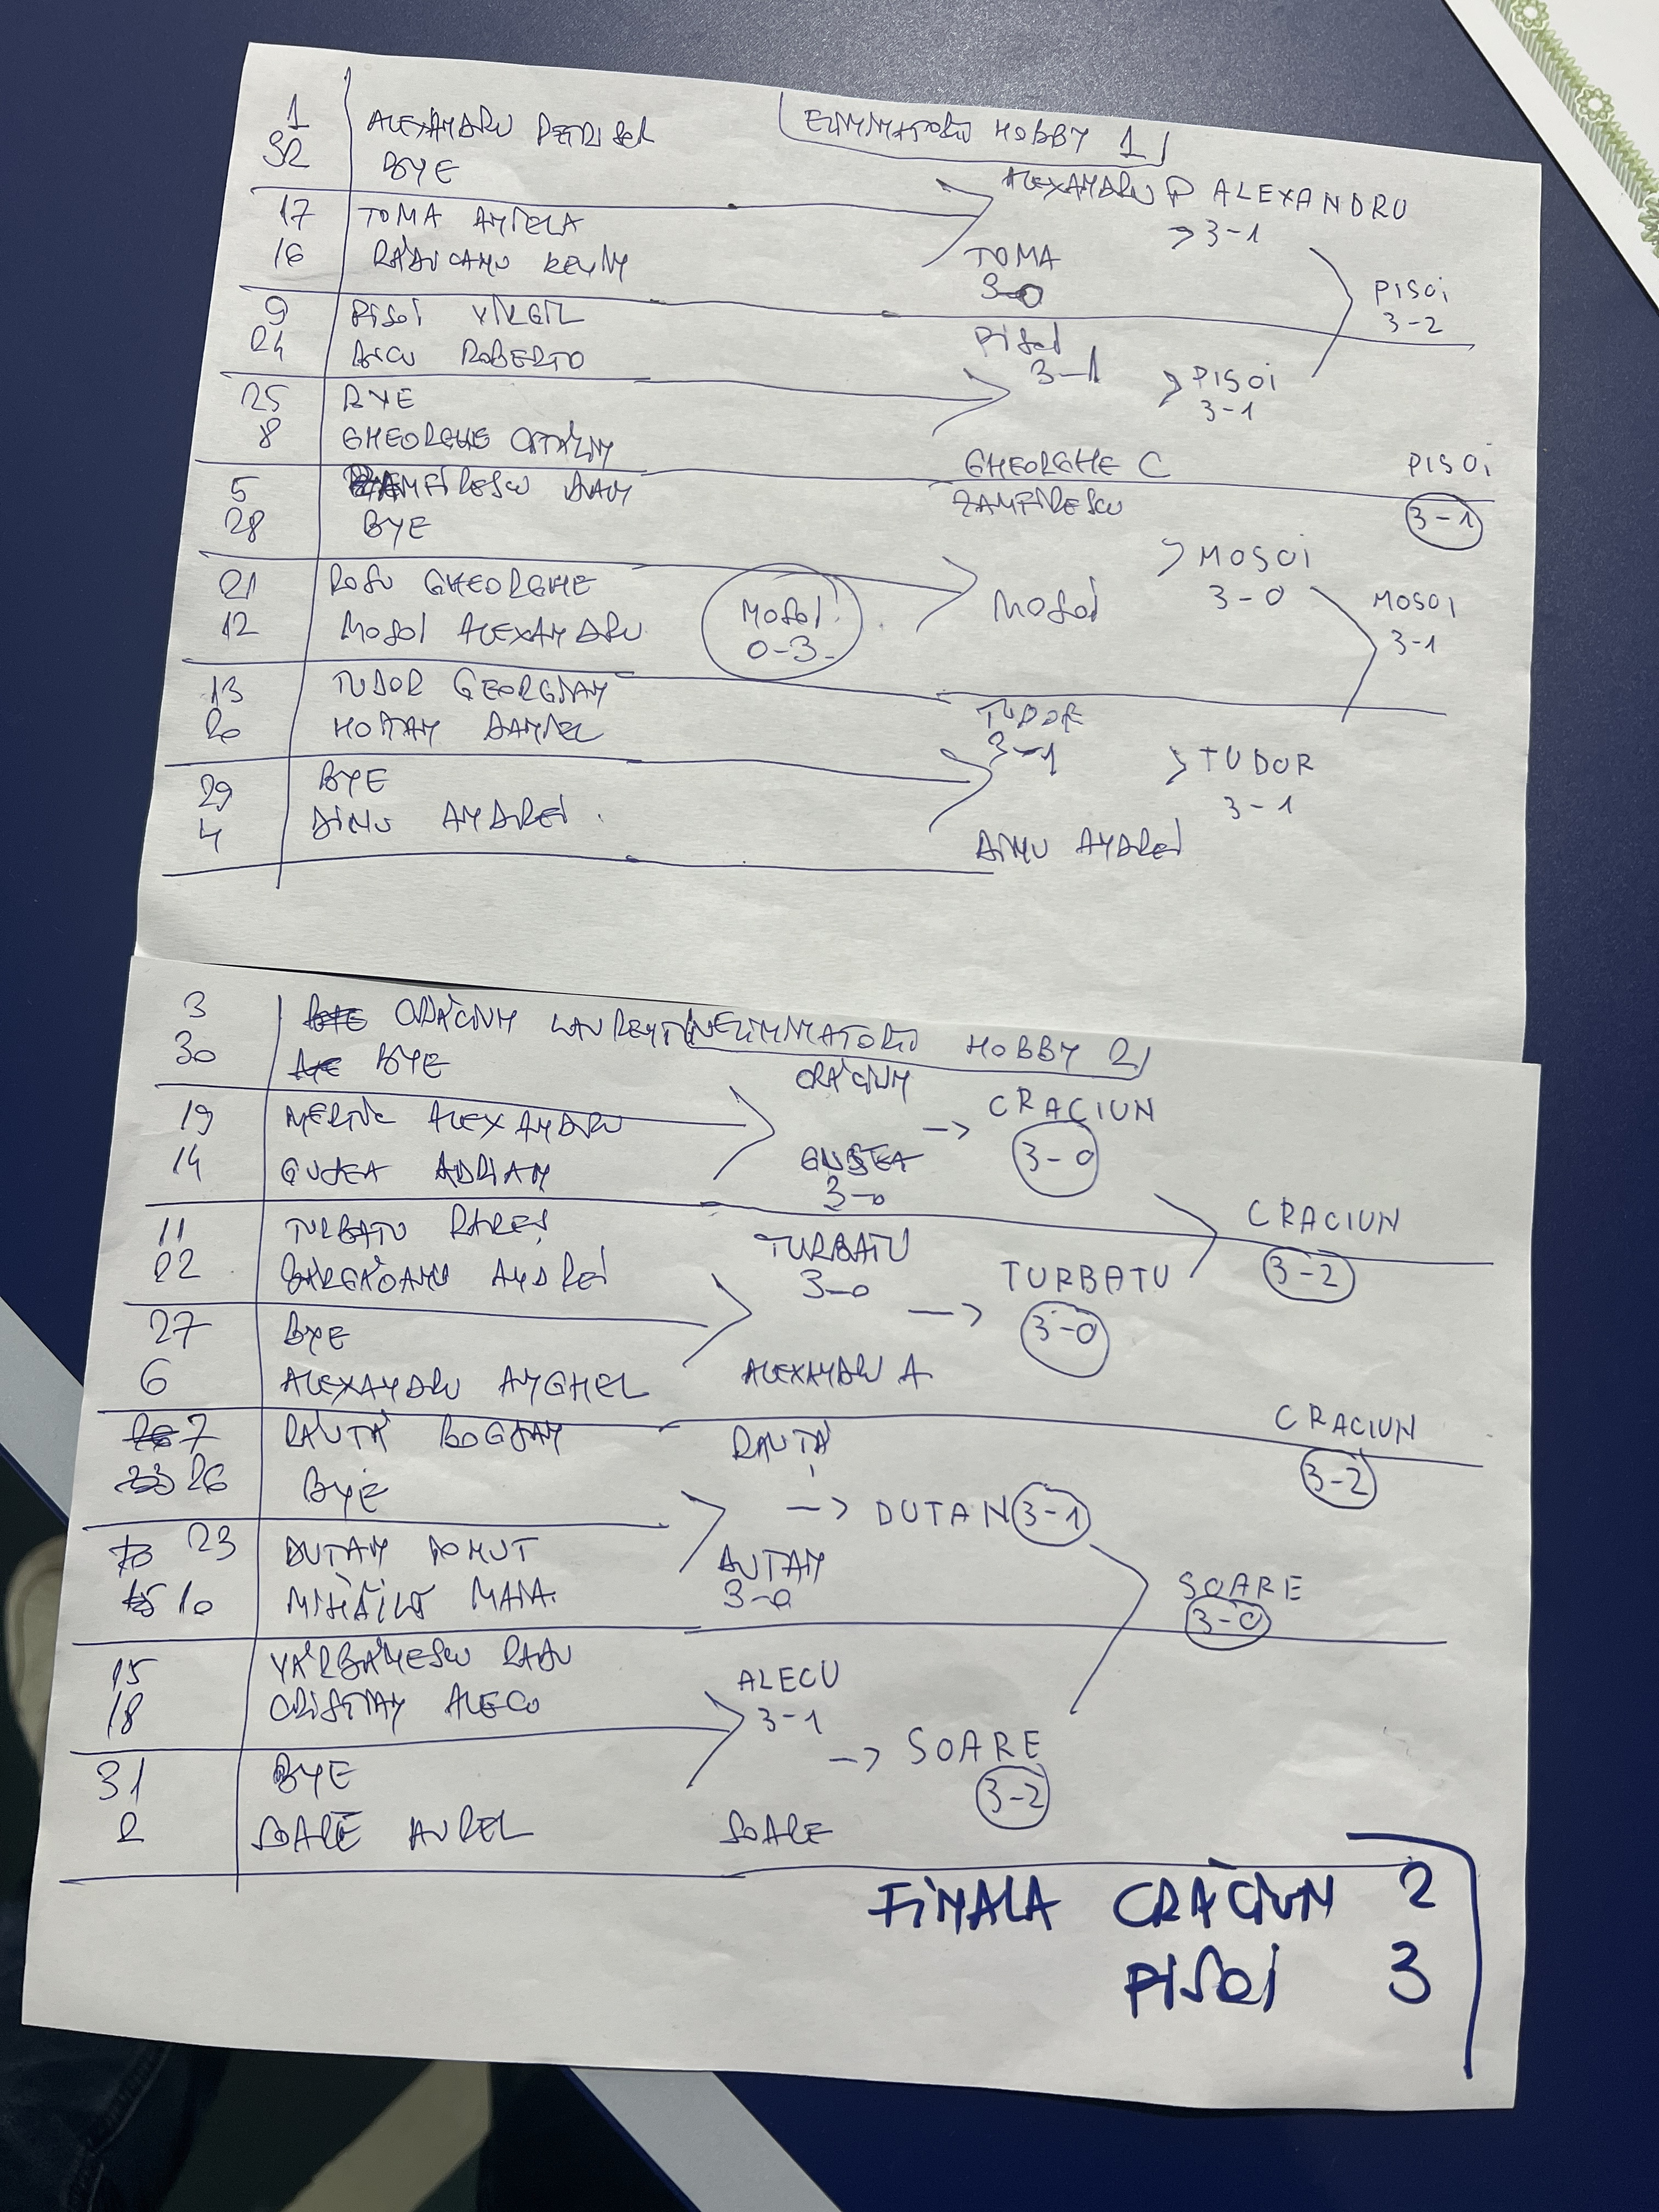 ELIMINATORII HOBBY 1
1 ALEXANDRU PETRISOR
32 BYE
ALEXANDRU P ALEXANDRU
3-1
17 TOMA ANTELA
16 RĂDUCANU KEVIN
TOMA
3-0
PISOI
3-2
9 PISOI VIRGIL
24 ROBERTO
PISOI
3-1
PISOI
3-1
25 BYE
8 GHEORGHE CĂTĂLIN
GHEORGHE C
PISOI
3-1
5 ZAMFIRESCU DAN
28 BYE
ZAMFIRESCU
MOSOI
3-0
21 ROSU GHEORGHE
12 MOSOI ALEXANDRU
MOSOI
0-3
MOSOI
MOSOI
3-1
13 TUDOR GEORGIAN
20 HOTIAN DANIEL
TUDOR
3-1
TUDOR
3-1
29 BYE
4 DINU ANDREI
DINU ANDREI
ELIMINATORII HOBBY 2
3 CRĂCIUN LAURENTIU
30 BYE
CRĂCIUN
CRACIUN
3-0
19 ALEXANDRU
14 GUSEA ADRIAN
3-0
11 TURBATU RAREȘ
22 ANDREI
TURBATU
3-0
TURBATU
3-0
CRACIUN
3-2
27 BYE
6 ALEXANDRU ANGHEL
ALEXANDRU A.
7 RĂUTĂ BOGDAN
26 BYE
RĂUTĂ
DUTAN 3-1
CRACIUN
3-2
23 DUTAN IONUT
10 MIHĂILĂ MARA
DUTAN
3-0
SOARE
3-0
15 VĂRBĂNESCU RADU
18 CRISTIAN ALECU
ALECU
3-1
SOARE
3-2
31 BYE
2 SOARE AUREL
SOARE
FINALA CRĂCIUN 2
PISOI 3